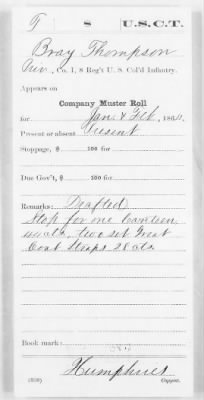 T 8 U.S.C.T.
Bray Thompson
Co. I, 8 Reg't U. S. Col'd Infantry.
Appears on
Company Muster Roll
for Jan & Feb, 186
Present or absent Present
Stoppage, $ 100 for
Due Gov't, $ 100 for
Remarks: Drafted
Stop for one Canteen
44 cts. two set Great
Coat Straps 28 cts.
Book mark:
Humphries
(858) Copyist.